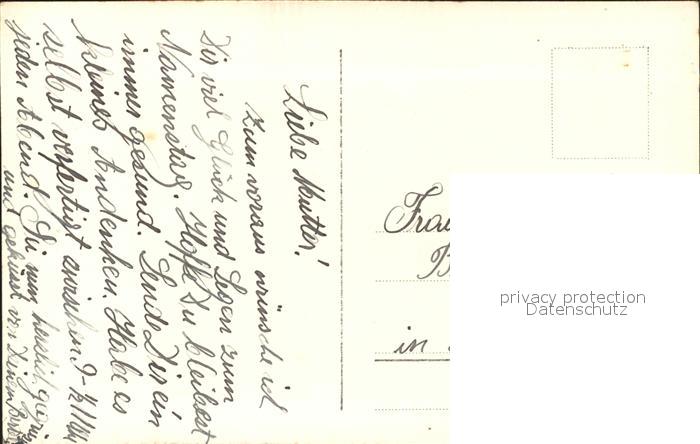 Liebe Mutter!
Zum voraus wünsche ich
Dir viel Glück und Segen zum
Namenstag. Hoffe Du bleibest
immer gesund. Sende Dir ein
kleines Andenken. Habe es
selbst verfertigt zwischen 9-½11 Uhr
jeden Abend. Sei nun herzlich gegrüßt
und geküsst von Deinem
Frau
B
in
privacy protection
Datenschutz